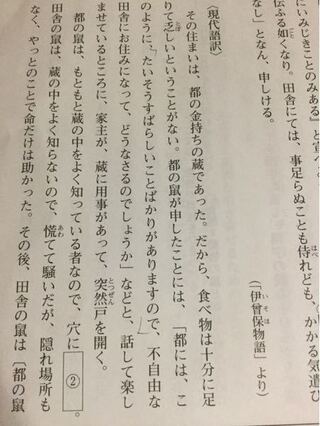 にいみじきことのみある』と宣へ
伝ふる如くなり。田舎にては、事足らぬことも侍れども、かかる気遣ひ
なし」となん、申しける。
(「伊曾保物語」より)
(現代語訳)
その住まいは、都の金持ちの蔵であった。だから、食べ物は十分に足
りて乏しいということがない。都の鼠が申したことには、「都には、こ
のように、たいそうすばらしいことばかりがありますので、不自由な
田舎にお住みになって、どうなさるのでしょうか」などと、話して楽し
ませているところに、家主が、蔵に用事があって、突然戸を開く。
都の鼠は、もともと蔵の中をよく知っている者なので、穴に②。
田舎の鼠は、蔵の中をよく知らないので、慌てて騒いだが、隠れ場所も
なく、やっとのことで命だけは助かった。その後、田舎の鼠は〔都の鼠